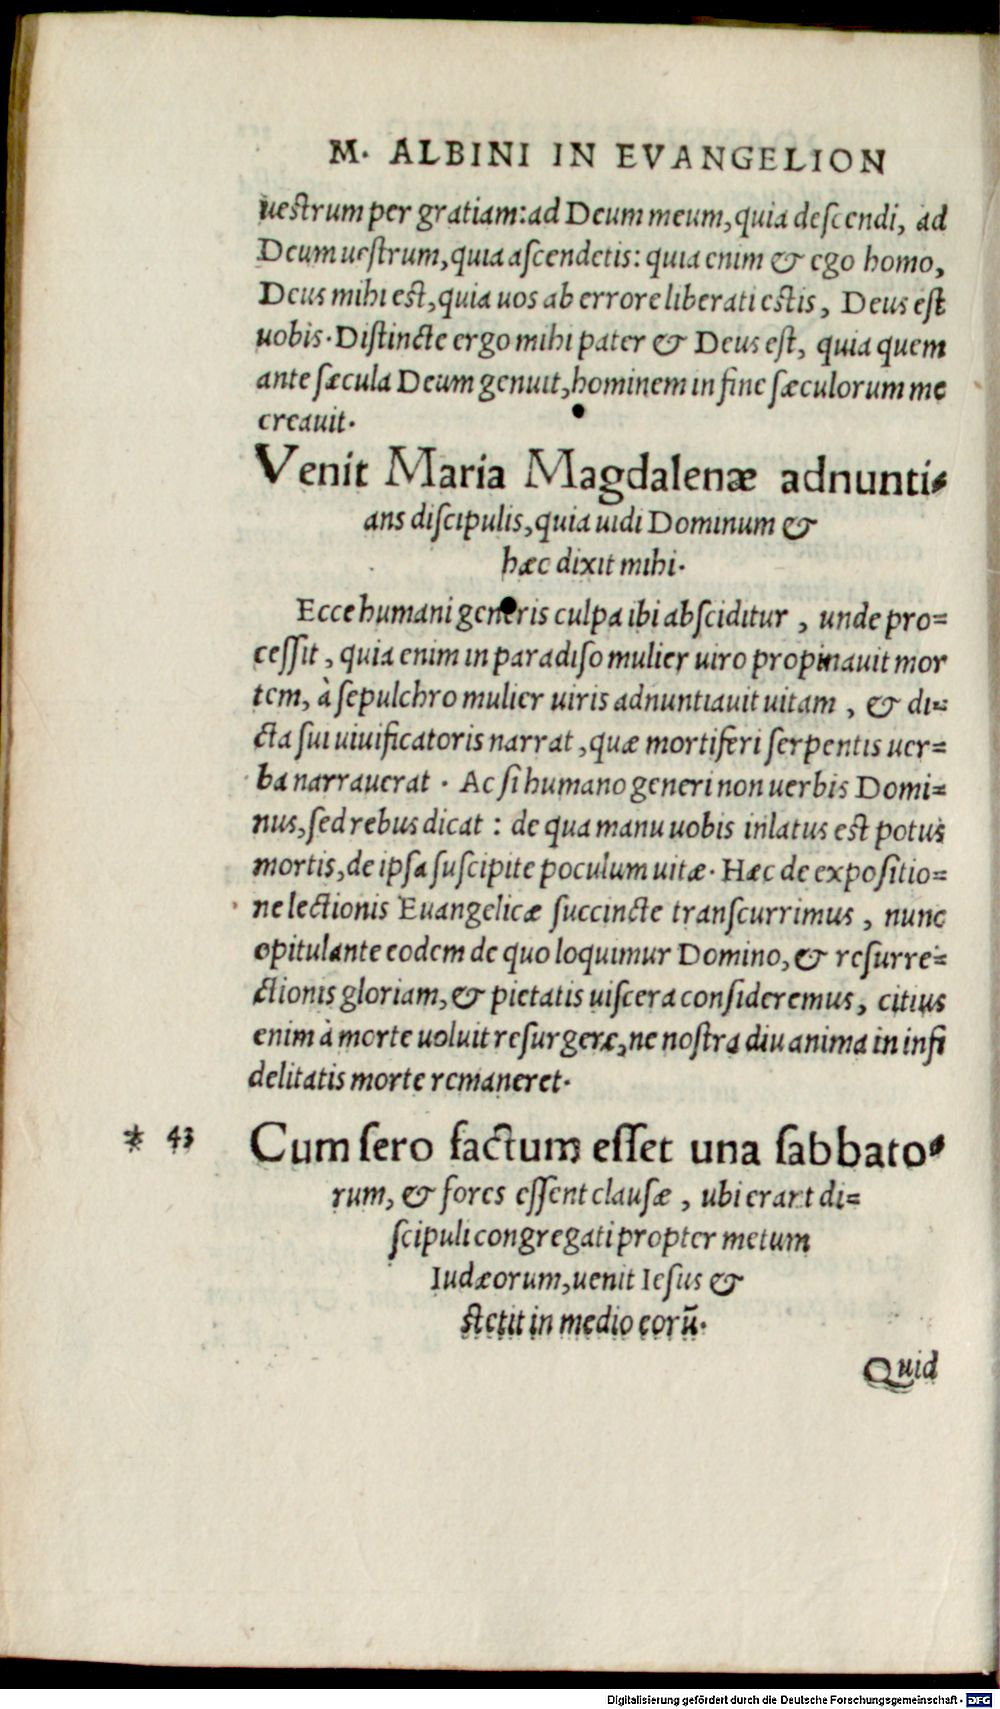 M. ALBINI IN EVANGELION
uestrum per gratiam: ad Deum meum, quia deſcendi, ad
Deum ueſtrum, quia aſcendetis: quia enim & ego homo,
Deus mihi est, quia uos ab errore liberati estis, Deus eſt
uobis. Diſtincte ergo mihi pater & Deus eſt, quia quem
ante ſæcula Deum genuit, hominem in fine ſæculorum me
creauit.
Venit Maria Magdalenæ adnunti=
ans diſcipulis, quia uidi Dominum &
hæc dixit mihi.
Ecce humani generis culpa ibi abſciditur, unde pro=
ceſſit, quia enim in paradiſo mulier uiro propinauit mor
tem, à ſepulchro mulier uiris adnuntiauit uitam, & di=
cta ſui uiuificatoris narrat, quæ mortiferi ſerpentis uer=
ba narrauerat. Ac ſi humano generi non uerbis Domi=
nus, ſed rebus dicat: de qua manu uobis inlatus est potus
mortis, de ipſa ſuſcipite poculum uitæ. Hæc de expoſitio=
ne lectionis Euangelicæ ſuccincte tranſcurrimus, nunc
opitulante eodem de quo loquimur Domino, & reſurre=
ctionis gloriam, & pietatis uiſcera conſideremus, citius
enim à morte uoluit reſurgere, ne noſtra diu anima in infi
delitatis morte remaneret.
* 43 Cum ſero factum eſſet una ſabbato=
rum, & fores eſſent clauſæ, ubi erant di=
ſcipuli congregati propter metum
Iudæorum, uenit Ieſus &
stetit in medio eorū.
Quid
Digitalisierung gefördert durch die Deutsche Forschungsgemeinschaft - DFG